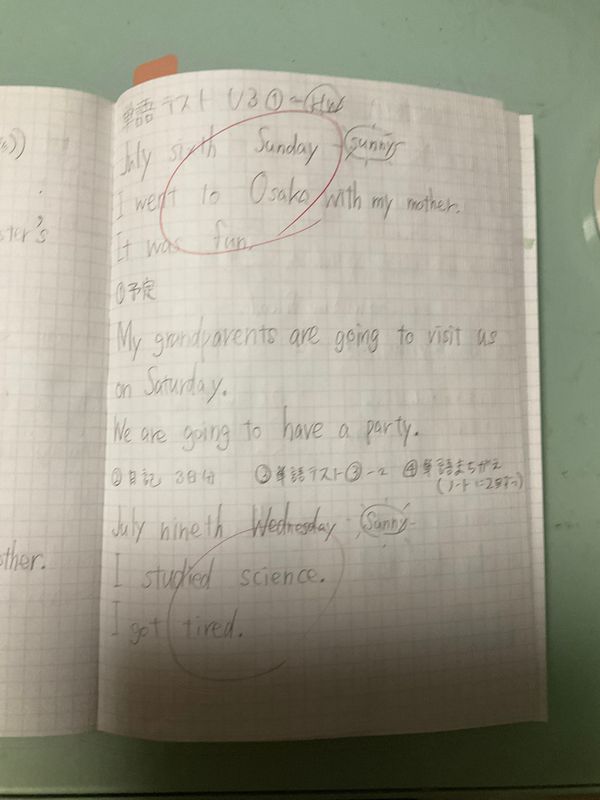 単語テスト U3①~HW
July sixth Sunday sunny
I went to Osaka with my mother.
It was fun.
①予定
My grandparents are going to visit us
on Saturday.
We are going to have a party.
②日記 3日分 ③単語テスト③-2 ④単語まちがえ
(ノートに2行ずつ)
July nineth Wednesday sunny
I studied science.
I got tired.
ster's
other.